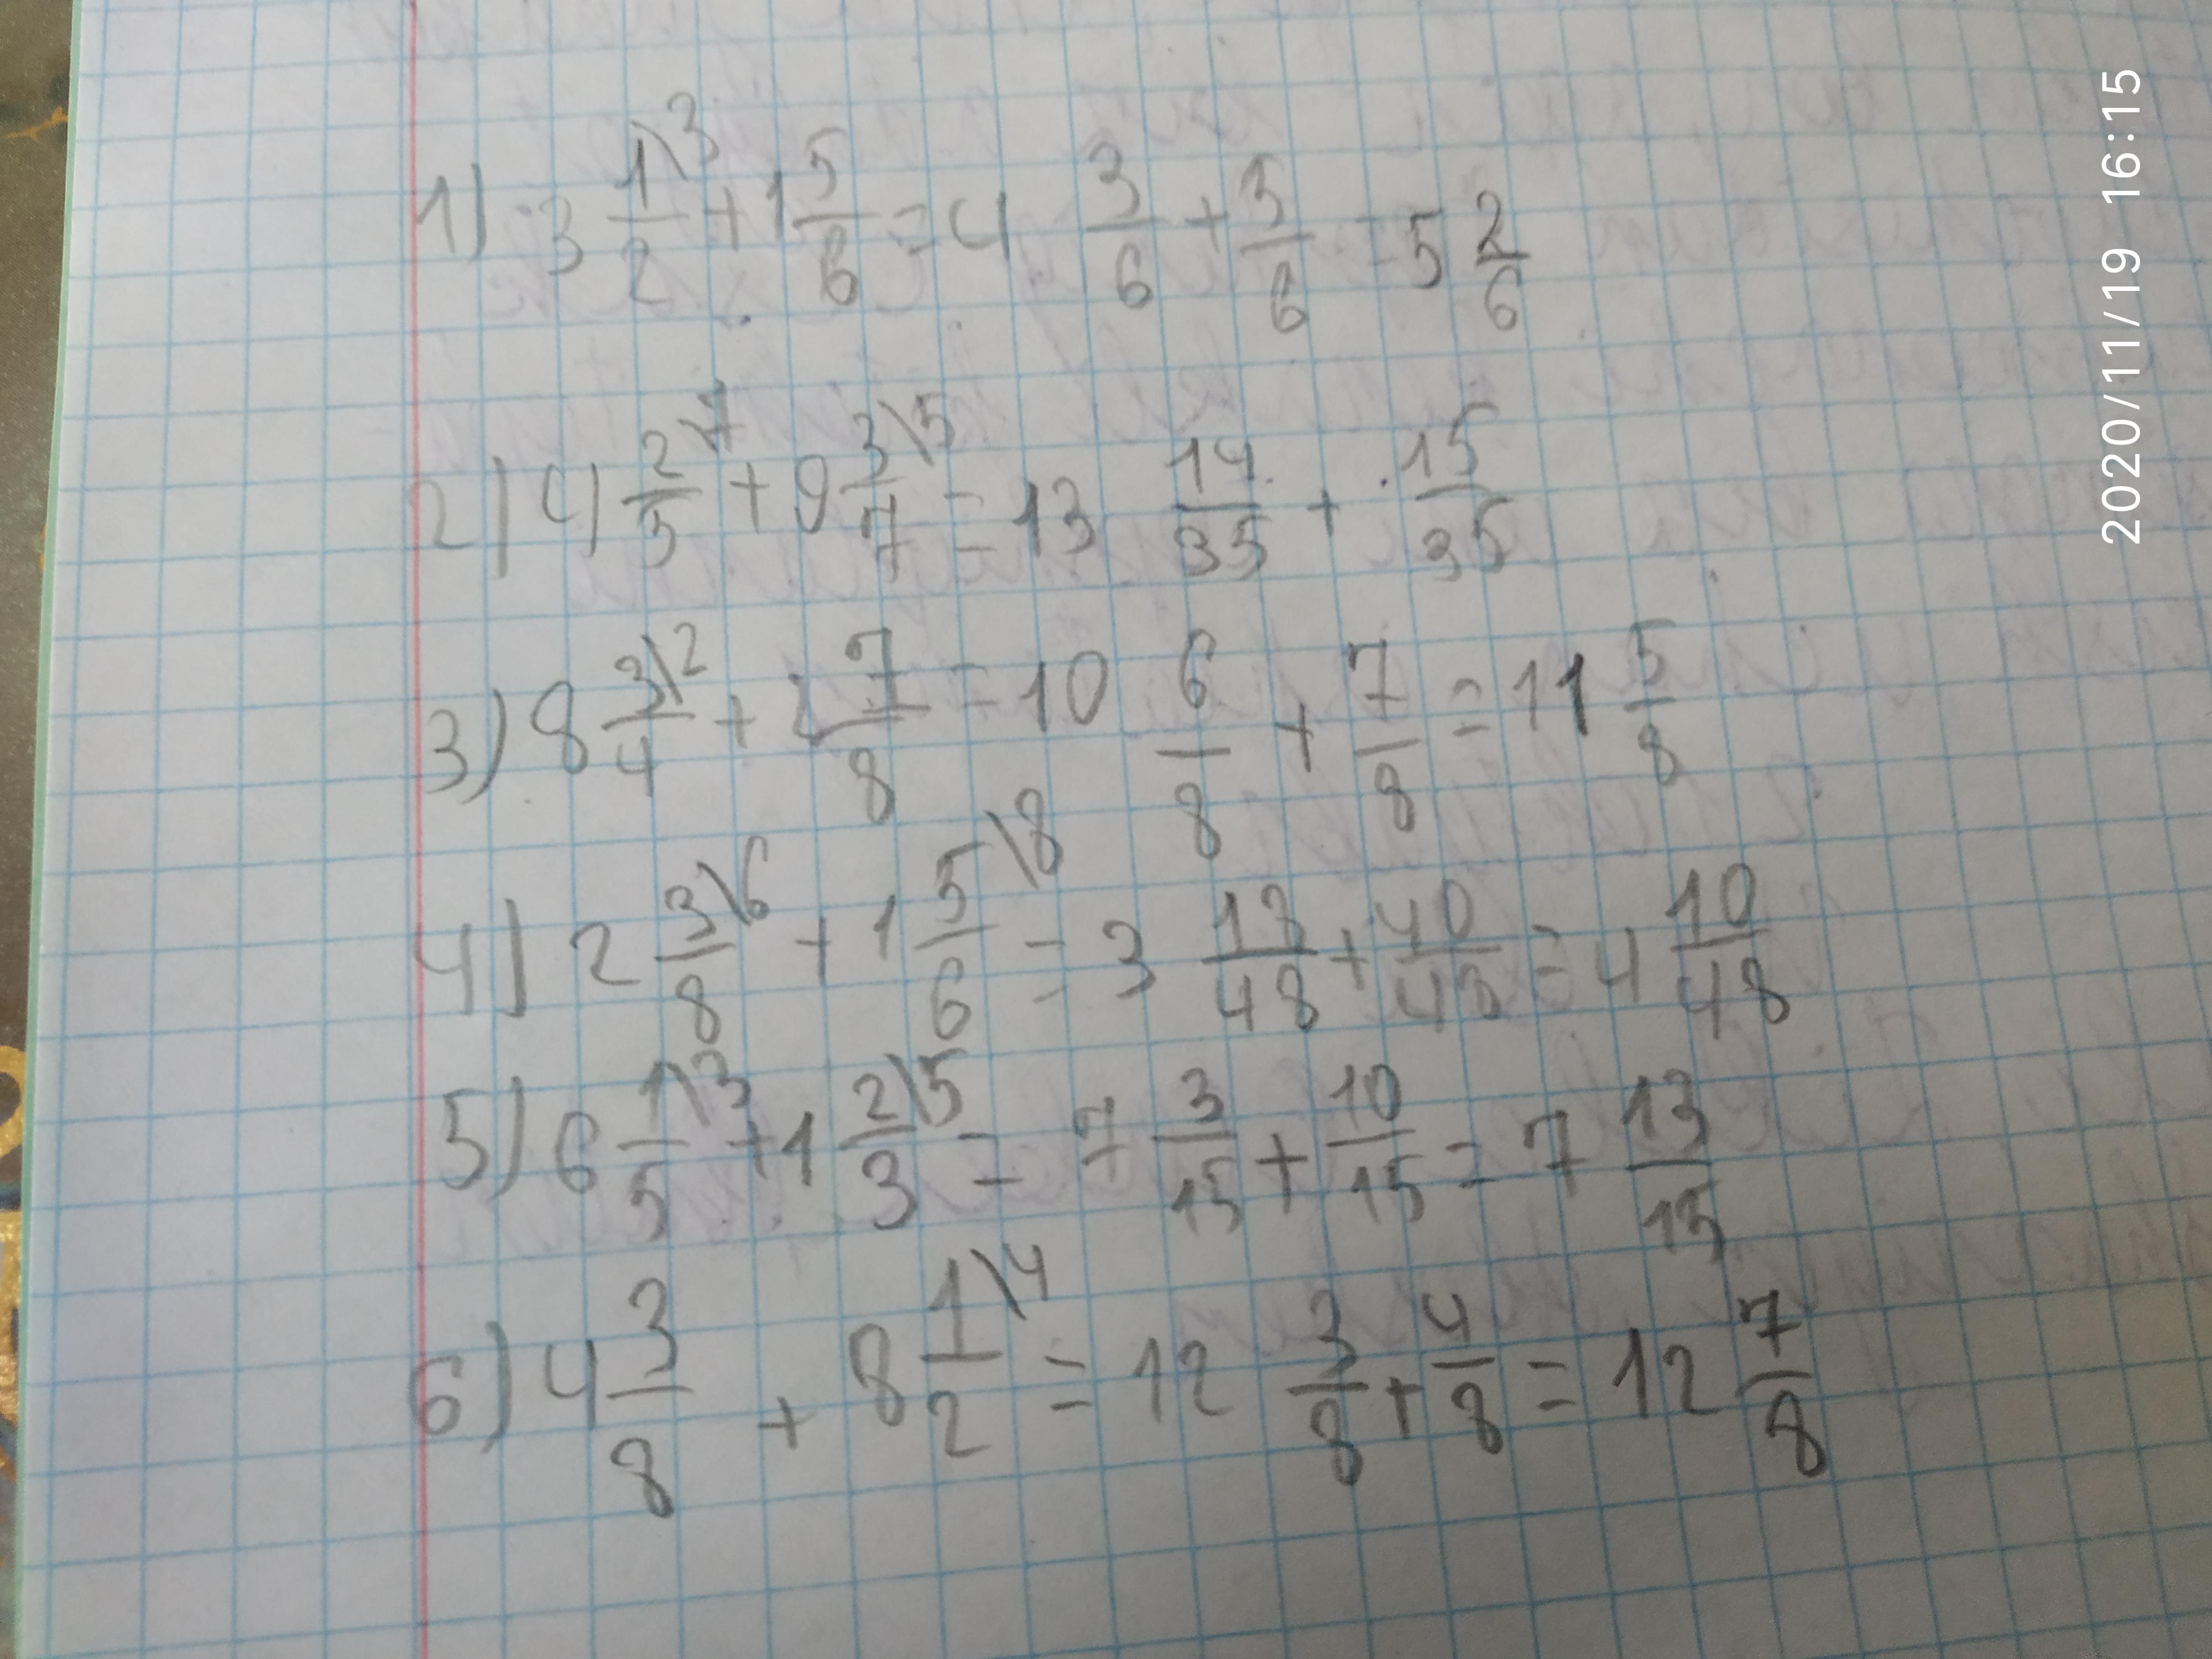 1) 3 1\3/2 + 1 5/6 = 4 3/6 + 5/6 = 5 2/6
2) 4 2\7/5 + 9 3\5/7 = 13 14/35 + 15/35
3) 8 3\2/4 + 2 7/8 = 10 6/8 + 7/8 = 11 5/8
4) 2 3\6/8 + 1 5\8/6 = 3 18/48 + 40/48 = 4 10/48
5) 6 1\3/5 + 1 2\5/3 = 7 3/15 + 10/15 = 7 13/15
6) 4 3/8 + 8 1\4/2 = 12 3/8 + 4/8 = 12 7/8
2020/11/19 16:15